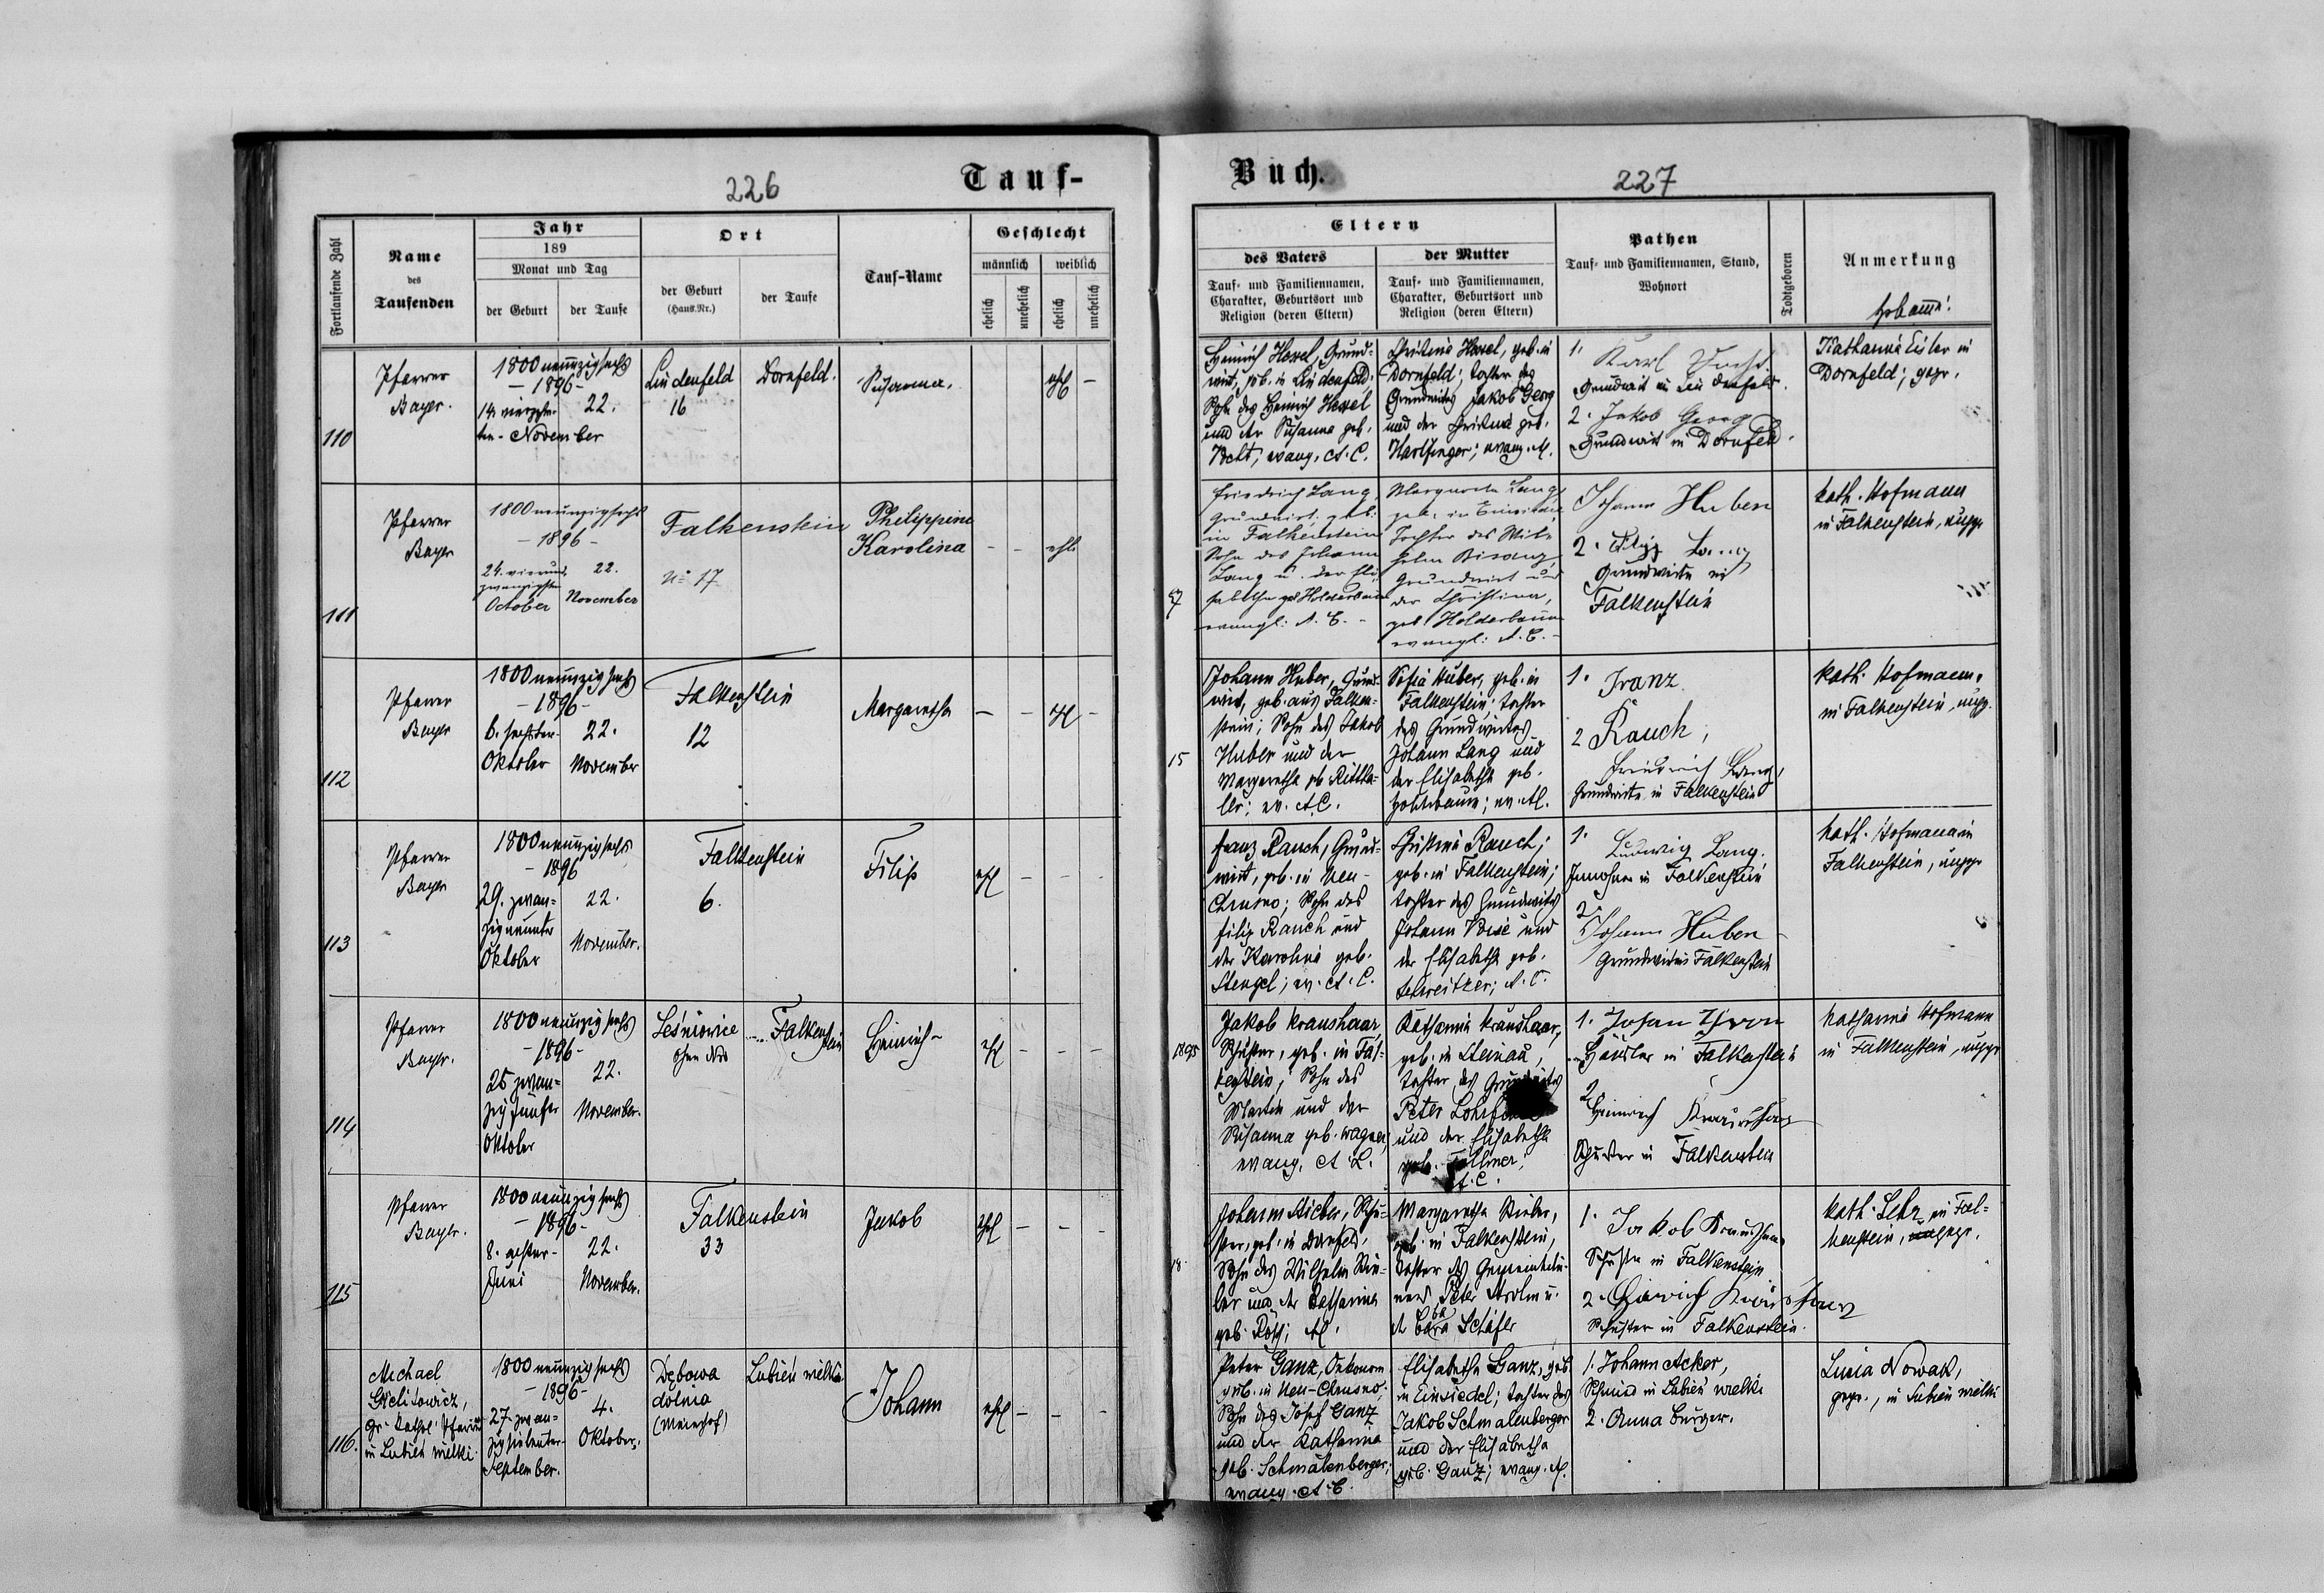 226
Tauf-
Fortlaufende Zahl
Name
des
Taufenden
Jahr
189
Monat und Tag
der Geburt
der Taufe
Ort
der Geburt
(Haus-Nr.)
der Taufe
Tauf-Name
Geschlecht
männlich
weiblich
ehelich
unehelich
ehelich
unehelich
110
Pfarrer
Bayer.
1800 neunzig sechs
- 1896 -
14. vierzehn-
ten - November
22.
Lindenfeld
16
Dornfeld.
Susanna.
ehl
-
111
Pfarrer
Bayer
1800 neunzigsechs
- 1896 -
24. vierund
zwanzigsten
October
22.
November
Falkenstein
No 17
Philippine
Karolina
- - ehl
112
Pfarrer
Bayer
1800 neunzig sechs
- 1896 -
6. sechster
Oktober
22.
November
Falkenstein
12
Margaretha
- - ehl -
113
Pfarrer
Bayer
1800 neunzig sechs
- 1896
29. zwan=
zigneunter
Oktober
22.
November.
Falkenstein
6.
Filip
ehl - - -
114
Pfarrer
Bayer.
1800 neunzig sechs
- 1896 -
25 zwan=
zigfünfter
Oktober
22.
November.
Leśniowice
ohne Nro
Falkenstein
Heinrich
ehl - - -
115
Pfarrer
Bayer.
1800 neunzig sechs
- 1896 -
8. achter -
Juni
22.
November.
Falkenstein
33
Jakob
ehl - - -
116.
Michael
gr. kathol. Pfarrer
in Lubień wielki.
1800 neunzig sechs
- 1896 -
27. zwan=
zigsiebenter
September.
4.
Oktober.
Dębowa
dolnia
(Meierhof)
Lubień wielki.
Johann
ehl - - -
Buch.
227
Eltern
des Vaters
Tauf- und Familiennamen,
Charakter, Geburtsort und
Religion (deren Eltern)
der Mutter
Tauf- und Familiennamen,
Charakter, Geburtsort und
Religion (deren Eltern)
Pathen
Tauf- und Familiennamen, Stand,
Wohnort
Todtgeboren
Anmerkung
Hebamme:
Heinrich Hexel, Grund=
wirt, geb. in Lindenfeld.
Sohn des Heinrich Hexel
und der Susanna geb.
evang. A. C.
Christina Hexel, geb. in
Dornfeld; Tochter des
Grundwirtes Jakob Georg
und der Christina geb.
Harlfinger; evang. A.
1.
Karl
Grundwirt in Lindenfeld.
2. Jakob Georg
Grundwirt in Dornfeld.
Katharina Eisler in
Dornfeld; gepr.
Friedrich Lang,
Grundwirt. geb.
in Falkenstein
Sohn des Johann
Lang u. der Eli=
sabetha geb Holderbaum
evangl: A. C. -
Margareta Lang,
geb. in Einsiedel,
Tochter des Wil=
helm Bisanz,
Grundwirt und
der Christina,
geb Holderbaum
evangl: A. C. -
Johann Huber
2. Filip Lang
Grundwirte in
Falkenstein
kath. Hofmann
in Falkenstein, ungepr
15
Johann Huber, Grund=
wirt, geb. aus Falken=
stein; Sohn des Jakob
Huber und der
Margaretha geb Rittha=
ler; ev. A.C.
Sofia Huber, geb. in
Falkenstein; Tochter
des Grundwirtes
Johann Lang und
der Elisabetha geb.
Holderbaum; ev. A.
1. Franz
2 Rauch;
Friedrich Lang,
Grundwirte in Falkenstein
kath. Hofmann
in Falkenstein, ungepr.
Franz Rauch, Grund=
wirt, geb. in Neu-
Chrusno; Sohn des
Filip Rauch und
der Karolina geb.
Stengel; ev. A. C.
Christina Rauch;
geb. in Falkenstein;
Tochter des Grundwirtes
Johann und
der Elisabetha geb.
Schweitzer; A. C.
1.
Ludwig Lang.
Inwohner in Falkenstein
2.
Johann Huber
Grundwirt in Falkenstein
kath. Hofmann in
Falkenstein, ungepr
1895
Jakob Kraushaar,
Schuster, geb. in Fal=
kenstein; Sohn des
Martin und der
Susanna geb. Wagner;
evang. A. C.
Katharina Kraushaar,
geb. in Reinau,
Tochter des Grundwirtes
Peter
und der Elisabetha
geb.
A. C.
1. Johan
Häusler in Falkenstein
2
Heinrich Kraushaar
Schuster in Falkenstein
Katharina Hofmann
in Falkenstein, ungepr
18
Johann Rieber, Schu=
ster, geb. in Dornfeld.
Sohn des Wilhelm Rie=
ber und der Katharina
geb. Roth; A.
Margaretha Rieber,
geb. in Falkenstein,
Tochter des Gemeindedie=
ners Peter u.
d. Schäfer
1. Jakob Kraushaar
Schuster in Falkenstein
2. Heinrich Kraushaar
Schuster in Falkenstein.
kath. Lehr in Fal=
kenstein, gepr.
Peter Ganz, Oekonom
geb. in Neu-Chrusno;
Sohn des Josef Ganz
und der Katharina
geb. Schmalenberger;
evang. A. C.
Elisabetha Ganz, geb
in Einsiedel; Tochter des
Jakob Schmalenberger
und der Elisabetha
geb. Ganz; evang. A.
1. Johann Acker,
Schmied in Lubień wielki
2. Anna Burger.
Lucia Nowak,
gepr., in Lubień wielki